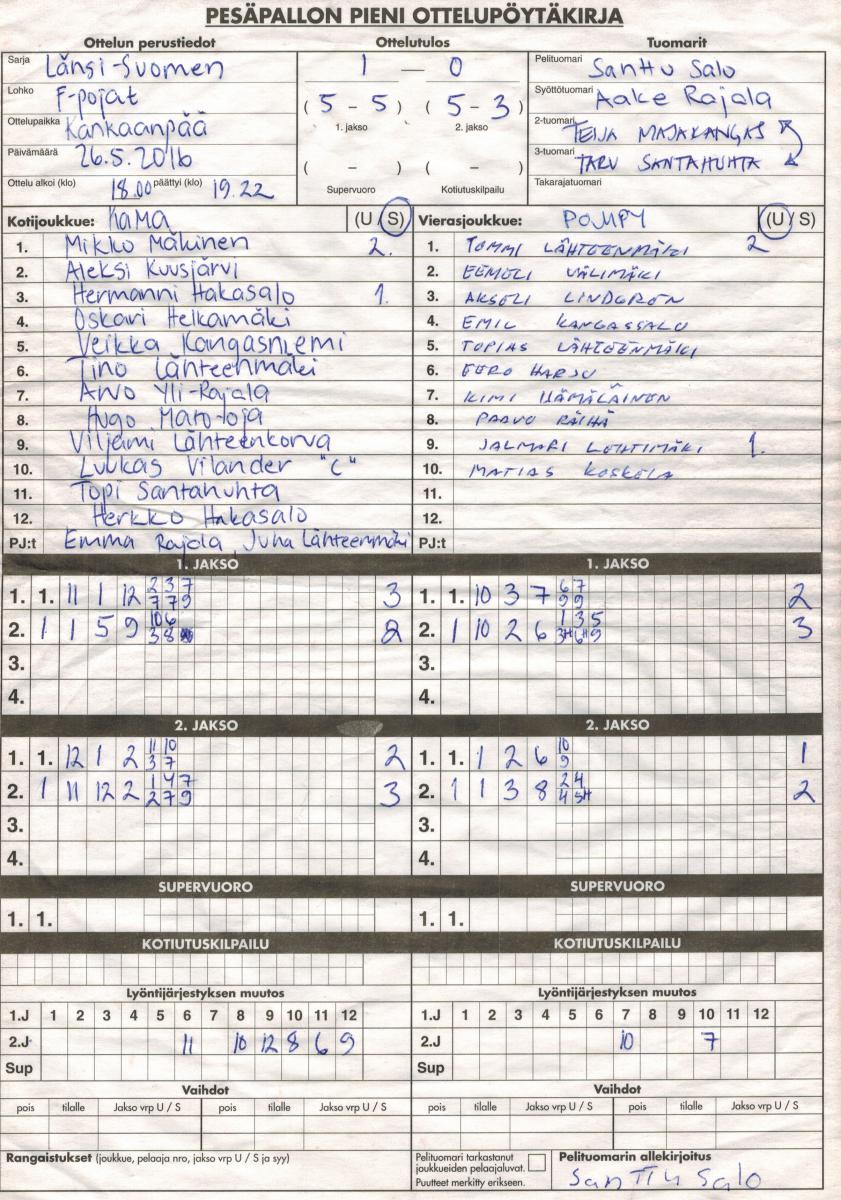 PESÄPALLON PIENI OTTELUPÖYTÄKIRJA
Ottelun perustiedot Ottelutulos Tuomarit
Sarja Länsi-Suomen 1 — 0 Pelituomari Santtu Salo
Lohko F-pojat ( 5 - 5 ) ( 5 - 3 ) Syöttötuomari Aake Rajala
Ottelupaikka Kankaanpää 1. jakso 2. jakso 2-tuomari TEIJA MAJAKANGAS
Päivämäärä 26.5.2016 ( - ) ( - ) 3-tuomari TARU SANTAHUHTA
Ottelu alkoi (klo) 18.00 päättyi (klo) 19.22 Supervuoro Kotiutuskilpailu Takarajatuomari
Kotijoukkue: KaMa (U / S) Vierasjoukkue: POMPY (U / S)
1. Mikko Mäkinen 2. 1. TOMMI LÄHTEENMÄKI 2
2. Aleksi Kuusjärvi 2. EEMELI VÄLIMÄKI
3. Hermanni Hakasalo 1. 3. AKSELI LINDGREN
4. Oskari Heikamäki 4. EMIL KANGASSALO
5. Veikka Kangasniemi 5. TOPIAS LÄHTEENMÄKI
6. Tino Lähteenmäki 6. EERO HARJU
7. Arvo Yli-Rajala 7. KIMI HÄMÄLÄINEN
8. Hugo 8. PAAVO RÄIHÄ
9. Viljami Lähteenkorva 9. JALMARI LEHTIMÄKI 1.
10. Luukas Vilander "C" 10. MATIAS KOSKELA
11. Topi Santahuhta 11.
12. Herkko Hakasalo 12.
PJ:t Emma Rajala, Juha Lähteenmäki PJ:t
1. JAKSO 1. JAKSO
1. 1. 11 1 12 2 3 7 3 1. 1. 10 3 7 6 7 2
7 7 9 9 9
2. 1 1 5 9 10 6 2 2. 1 10 2 6 1 3 5 3
3 8 3H 6H 9
3. 3.
4. 4.
2. JAKSO 2. JAKSO
1. 1. 12 1 2 11 10 2 1. 1. 1 2 6 10 1
3 7 9
2. 1 11 12 2 1 4 7 3 2. 1 1 3 8 2 4 2
2 7 9 4 5H
3. 3.
4. 4.
SUPERVUORO SUPERVUORO
1. 1. 1. 1.
KOTIUTUSKILPAILU KOTIUTUSKILPAILU
Lyöntijärjestyksen muutos Lyöntijärjestyksen muutos
1.J 1 2 3 4 5 6 7 8 9 10 11 12 1.J 1 2 3 4 5 6 7 8 9 10 11 12
2.J 11 10 12 8 6 9 2.J 10 7
Sup Sup
Vaihdot Vaihdot
pois tilalle Jakso vrp U / S pois tilalle Jakso vrp U / S pois tilalle Jakso vrp U / S pois tilalle Jakso vrp U / S
Rangaistukset (joukkue, pelaaja nro, jakso vrp U / S ja syy) Pelituomari tarkastanut Pelituomarin allekirjoitus
joukkueiden pelaajaluvat.
Puutteet merkitty erikseen. Santtu Salo